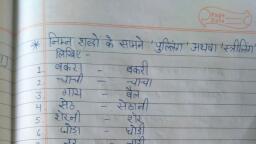 * निम्न शब्दों के सामने 'पुल्लिंग' अथवा 'स्त्रीलिंग'
लिखिए -
1. बकरा - बकरी
2. चाची - चाचा
3. गाय - बैल
4. सेठ - सेठानी
5. शेरनी - शेर
6. घोडा - घोडी